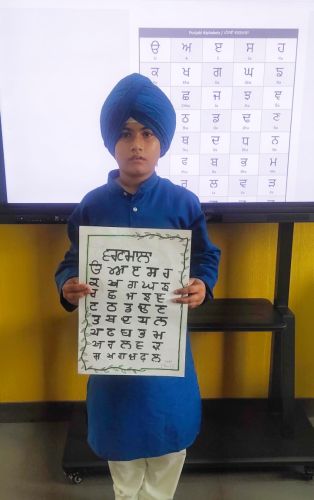 Punjabi Alphabets / ਪੰਜਾਬੀ ਵਰਣਮਾਲਾ
ੳ ਅ ੲ ਸ ਹ
ਕ ਖ ਗ ਘ ਙ
ਛ ਜ ਝ ਞ
ਠ ਡ ਢ ਣ
ਥ ਦ ਧ ਨ
ਫ ਬ ਭ ਮ
ਰ ਲ ਵ ੜ
ਵਰਣਮਾਲਾ
ੳ ਅ ੲ ਸ ਹ
ਕ ਖ ਗ ਘ ਙ
ਚ ਛ ਜ ਝ ਞ
ਟ ਠ ਡ ਢ ਣ
ਤ ਥ ਦ ਧ ਨ
ਪ ਫ ਬ ਭ ਮ
ਯ ਰ ਲ ਵ ੜ
ਸ਼ ਖ਼ ਗ਼ ਜ਼ ਫ਼ ਲ਼